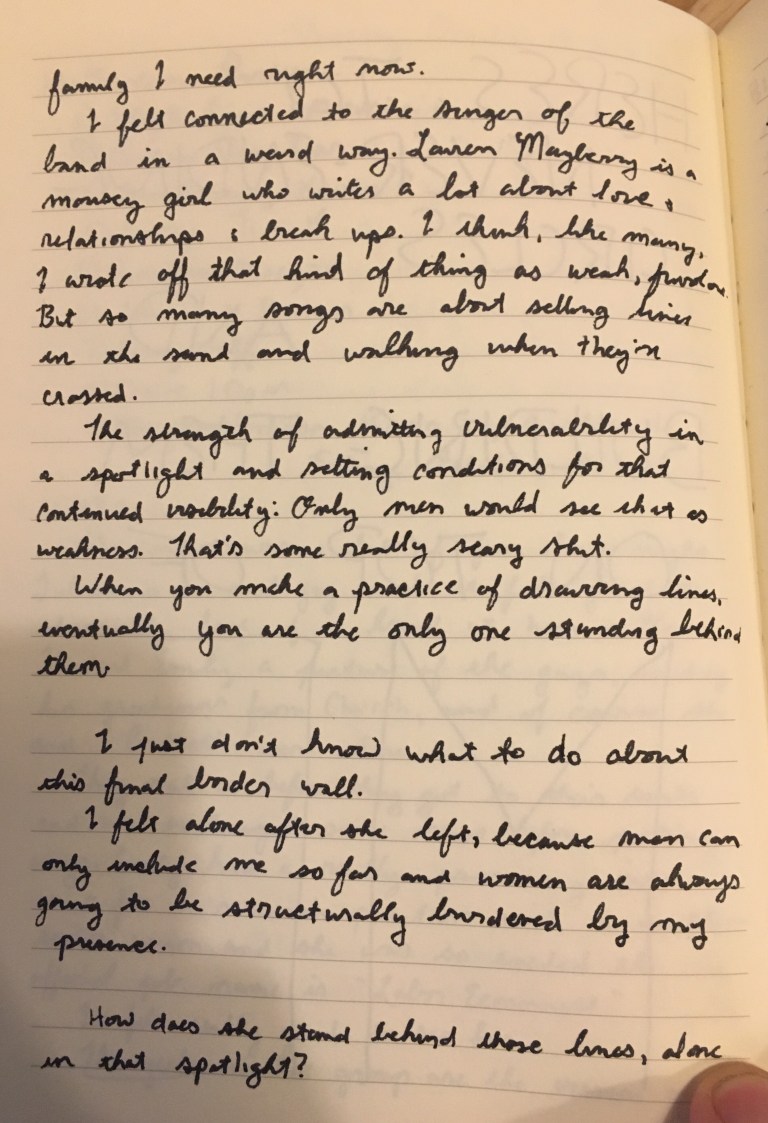 family I need right now.
I felt connected to the singer of the
band in a weird way. Lauren Mayberry is a
mousey girl who writes a lot about love,
relationships & break ups. I think, like many,
I wrote off that kind of thing as weak,
But so many songs are about setting lines
in the sand and walking when they're
crossed.
The strength of admitting vulnerability in
a spotlight and setting conditions for that
continued visibility: Only men would see that as
weakness. That's some really scary shit.
When you make a practice of drawing lines,
eventually you are the only one standing behind
them
I just don't know what to do about
this final border wall.
I felt alone after she left, because men can
only include me so far and women are always
going to be structurally burdened by my
presence.
How does she stand behind those lines, alone
in that spotlight?